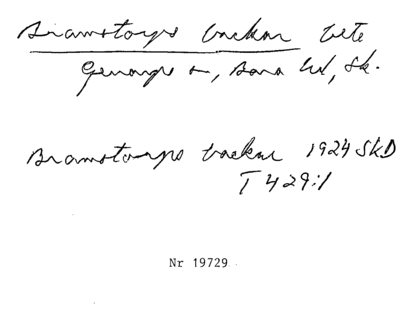 Bramstorps backar bete
Genarps sn, Bara hd, Sk.
Bramstorps backar 1924 SkD
T 429:1
Nr 19729